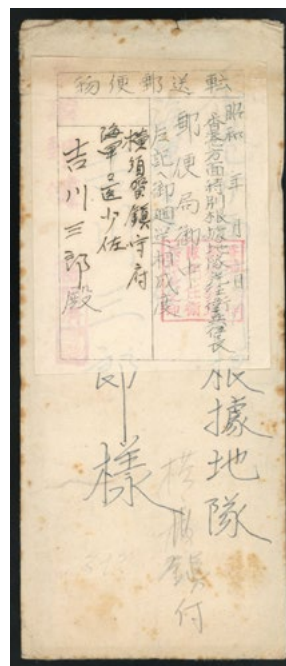 転送郵便物
昭和 年 月 日
香港方面特別根拠地隊
郵便局御中
左記ヘ御廻送相成度
横須賀鎮守府
海軍々医少佐
吉川三郎殿
根據地隊
郎様
横須鎮付